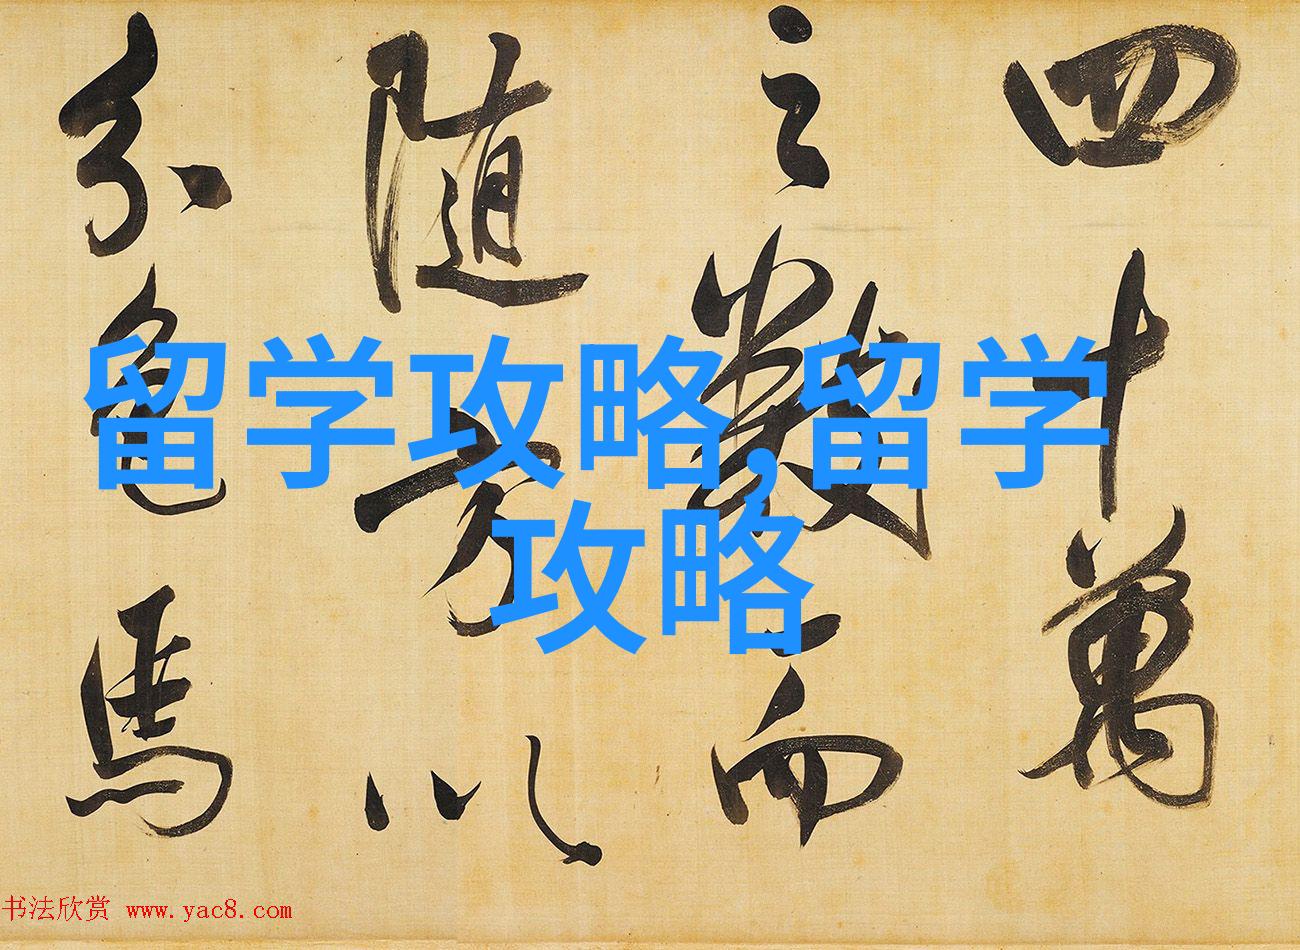 四十萬
之數而
隨方以
分色馬
留学攻略,留学
攻略
书法欣赏 www.yac8.com